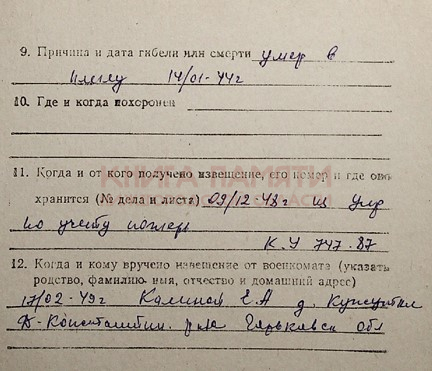 9. Причина и дата гибели или смерти умер в
плену 14/01-44г
10. Где и когда похоронен
11. Когда и от кого получено извещение, его номер и где оно
хранится (№ дела и листа) 09/12-48г из Упр
по учету потерь
К.У 747-87
12. Когда и кому вручено извещение от военкомата (указать
родство, фамилию, имя, отчество и домашний адрес)
17/02-49г Е.А д.
Д-Константин. р-на Горьковск обл
КНИГА ПАМЯТИ